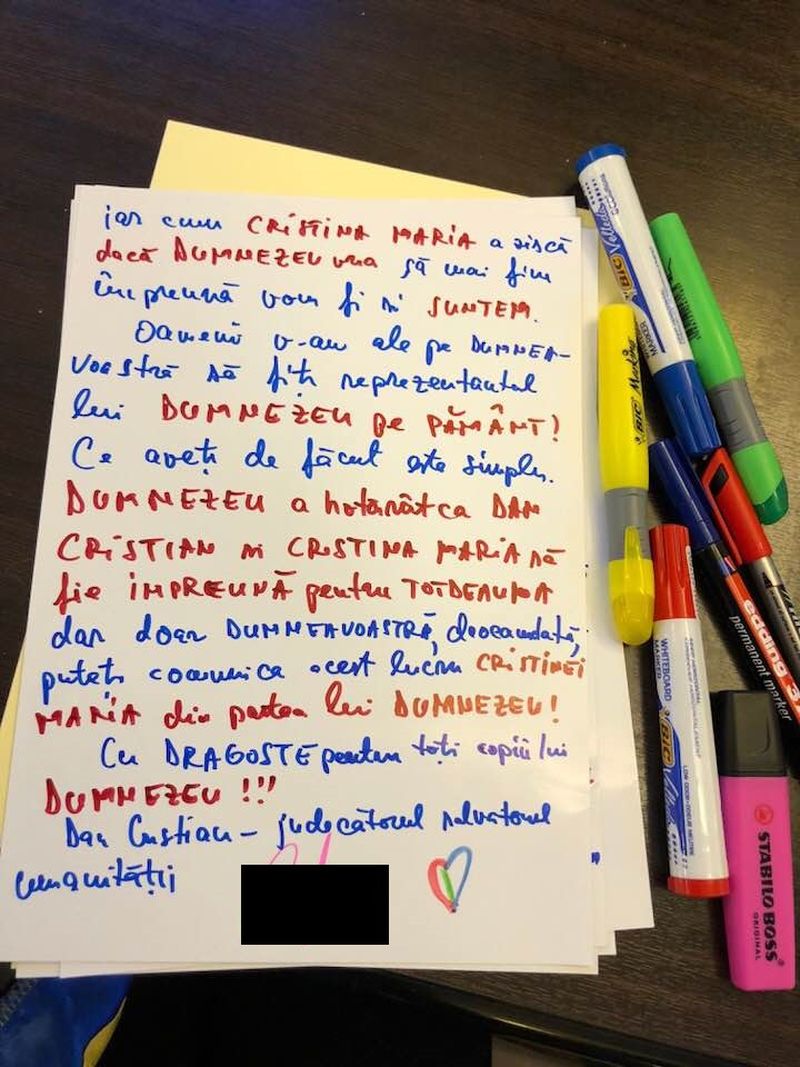 iar cum CRISTINA MARIA a zis că
dacă DUMNEZEU vrea să mai fim
împreună vom fi și SUNTEM.
Oamenii v-au ales pe DUMNEA-
VOASTRĂ să fiți reprezentantul
lui DUMNEZEU pe PĂMÂNT!
Ce aveți de făcut este simplu.
DUMNEZEU a hotărât ca DAN
CRISTIAN și CRISTINA MARIA să
fie ÎMPREUNĂ pentru TOTDEAUNA
dar doar DUMNEAVOASTRĂ, deocamdată,
puteți comunica acest lucru CRISTINEI
MARIA din partea lui DUMNEZEU!
Cu DRAGOSTE pentru toți copiii lui
DUMNEZEU !!!
Dan Cristian – judecătorul salvatorul
umanității
BIC Velleda
MARKER
BIC Marking
edding
permanent marker
WHITEBOARD
MARKER
BIC Velleda
STABILO BOSS
ORIGINAL